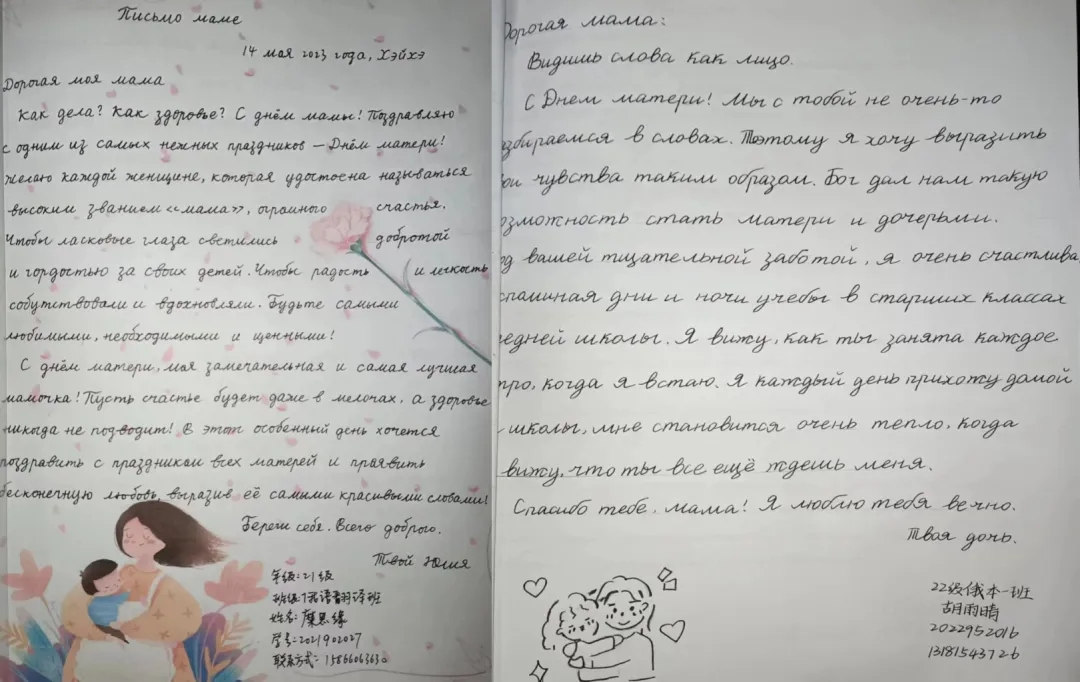 Письмо маме
14 мая 2023 года, Хэйхэ
Дорогая моя мама
Как дела? Как здоровье? С днём мамы! Поздравляю
с одним из самых нежных праздников — Днём матери!
желаю каждой женщине, которая удостоена называться
высоким званием «мама», огромного счастья.
Чтобы ласковые глаза светились добротой
и гордостью за своих детей. Чтобы радость и легкость
собутствовали и вдохновляли. Будьте самыми
любимыми, необходимыми и ценными!
С днём матери, моя замечательная и самая лучшая
мамочка! Пусть счастье будет даже в мелочах, а здоровье
никогда не подводит! В этот особенный день хочется
поздравить с праздником всех матерей и проявить
бесконечную любовь, выразив её самыми красивыми словами!
Береги себя. Всего доброго.
Твой Юлия
年级:21级
班级:俄语翻译班
姓名:糜思缘
学号:2021902027
联系方式:15866063630
Дорогая мама:
Видишь слова как лицо.
С Днем матери! Мы с тобой не очень-то
збираемся в словах. Поэтому я хочу выразить
ои чувства таким образом. Бог дал нам такую
озможность стать матери и дочерьми.
од вашей тщательной заботой, я очень счастлива
споминая дни и ночи учебы в старших классах
редней школы. Я вижу, как ты занята каждое
тро, когда я встаю. Я каждый день прихожу домой
школы, мне становится очень тепло, когда
вижу, что ты все ещё ждешь меня.
Спасибо тебе, мама! Я люблю тебя вечно.
Твоя дочь.
22级俄本一班
胡雨晴
2022952016
13181543726